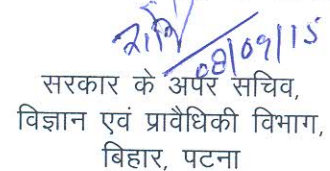 08/09/15
सरकार के अपर सचिव,
विज्ञान एवं प्रावैधिकी विभाग,
बिहार, पटना